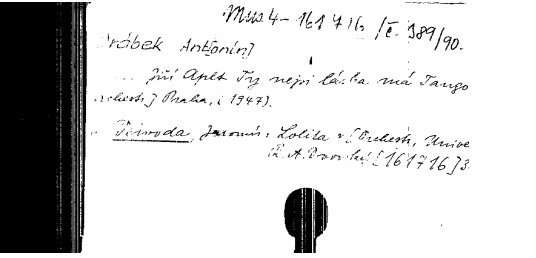 Mus. 4 - 1617 16 /č. 389/90.
rábek Antonín]
Jiří Aplt Ty nejsi láska má Tango
rchestr] Praha, [1947].
Pěnvoda, Jaromír: Lolita [Orchestr,
R. A. Dvorský [161716] 3.